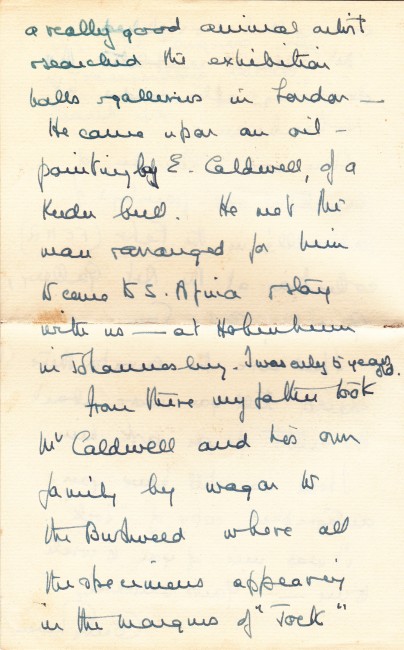 a really good animal artist
& searched the exhibition
halls & galleries in London —
He came upon an oil-
painting by E. Caldwell, of a
Kudu bull. He met the
man & arranged for him
to come to S. Africa & stay
with us — at Hohenheim
in Johannesburg. I was only 5 years old.
from there my father took
Mr Caldwell and his own
family by wagon to
the Bushveld where all
the specimens appearing
in the margins of "Jock"